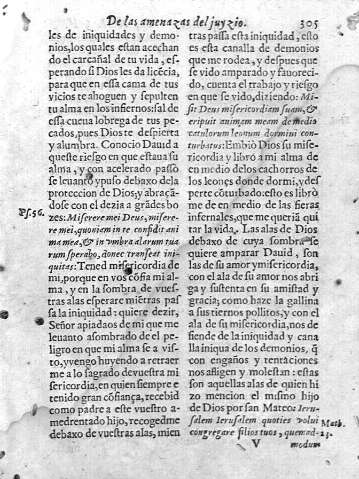 De las amenazas del juyzio. 305
les de iniquidades y demo-
nios, los quales estan acechan
do el carcañal de tu vida, es-
perando si Dios les da licẽcia,
para que en essa cama de tus
vicios te ahoguen y sepulten
tu alma en los infiernos: sal de
essa cueua lobrega de tus pe-
cados, pues Dios te despierta
y alumbra. Conocio Dauid a
queste riesgo en que estaua su
alma, y con acelerado passo
se leuantò y puso debaxo de la
proteccion de Dios, y abraçã-
dose con el dezia a grãdes bo
zes: Miserere mei Deus, misere-
re mei, quoniam in te confidit ani
ma mea, & in vmbra alarum tua
rum sperabo, donec transeat ini-
quitas: Tened misericordia de
mi, porque en vos cõfia mi al-
ma, y en la sombra de vues-
tras alas esperare miẽtras pas-
sa la iniquidad: quiere dezir,
Señor apiadaos de mi que me
leuanto assombrado de el pe-
ligro en que mi alma se a vis-
to, y vengo huyendo a retraer
me a lo sagrado de vuestra mi
sericordia, en quien siempre e
tenido gran cõfiança, recebid
como padre a este vuestro a-
medrentado hijo, recogedme
debaxo de vuestras alas, mien
Ps. 56.
tras passa esta iniquidad, esto
es esta canalla de demonios
que me rodea, y despues que
se vido amparado y fauoreci-
do, cuenta el trabajo y riesgo
en que se vido, diziendo: Mi-
sit Deus misericordiam suam, &
eripuit animam meam de medio
catulorum leonum dormiui contur-
batus: Embiò Dios su mise-
ricordia y librò a mi alma de
en medio de los cachorros de
los leones donde dormi, y des-
perte cõturbado: esto es librò
me de en medio de las fieras
infernales, que me queriã qui
tar la vida. Las alas de Dios
debaxo de cuya sombra se
quiere amparar Dauid, son
las de su amor y misericordia,
con el ala de su amor nos abri
ga y sustenta en su amistad y
gracia; como haze la gallina
a sus tiernos pollitos, y con el
ala de su misericordia, nos de
fiende de la iniquidad y cana
lla iniqua de los demonios, q̃
con engaños y tentaciones
nos afligen y molestan: estas
son aquellas alas de quien hi
zo mencion el mismo hijo
de Dios por san Mateo: Ieru-
salem Ierusalem quoties volui
congregare filios tuos, quemad-
Math.
23.
V modum